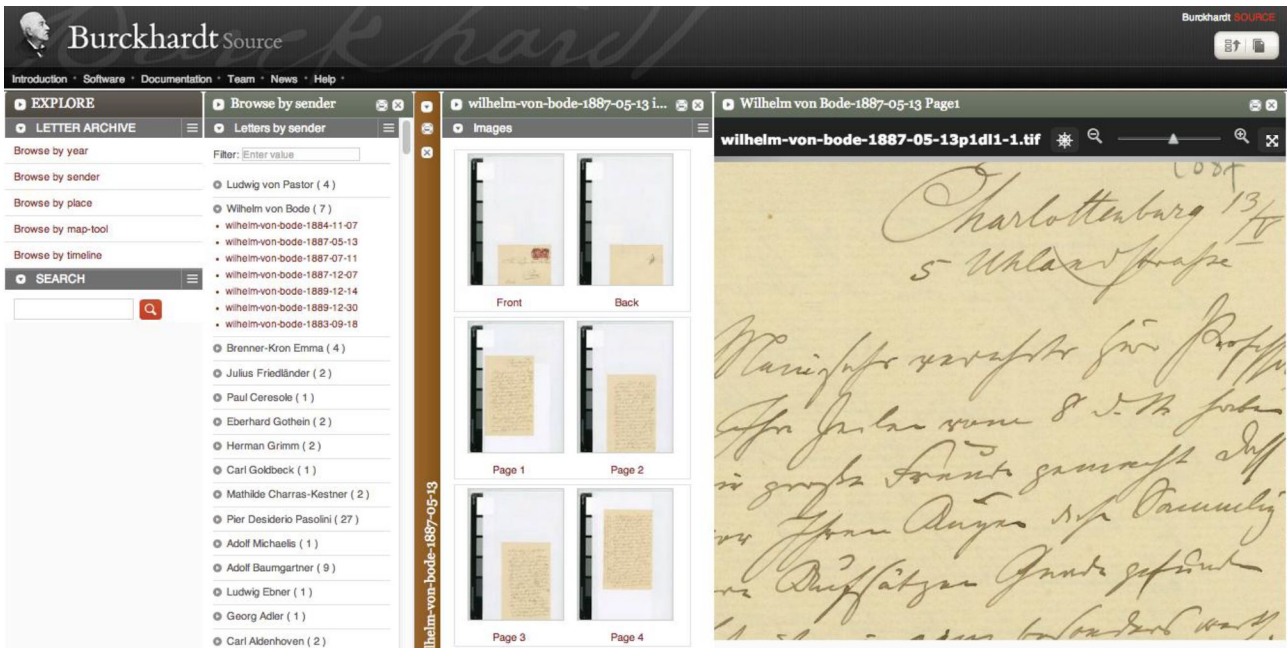 Burckhardt Source
Burckhardt SOURCE
Introduction * Software * Documentation * Team * News * Help *
EXPLORE
LETTER ARCHIVE
Browse by year
Browse by sender
Browse by place
Browse by map-tool
Browse by timeline
SEARCH
Browse by sender
Letters by sender
Filter: Enter value
Ludwig von Pastor ( 4 )
Wilhelm von Bode ( 7 )
• wilhelm-von-bode-1884-11-07
• wilhelm-von-bode-1887-05-13
• wilhelm-von-bode-1887-07-11
• wilhelm-von-bode-1887-12-07
• wilhelm-von-bode-1889-12-14
• wilhelm-von-bode-1889-12-30
• wilhelm-von-bode-1883-09-18
Brenner-Kron Emma ( 4 )
Julius Friedländer ( 2 )
Paul Ceresole ( 1 )
Eberhard Gothein ( 2 )
Herman Grimm ( 2 )
Carl Goldbeck ( 1 )
Mathilde Charras-Kestner ( 2 )
Pier Desiderio Pasolini ( 27 )
Adolf Michaelis ( 1 )
Adolf Baumgartner ( 9 )
Ludwig Ebner ( 1 )
Georg Adler ( 1 )
Carl Aldenhoven ( 2 )
lhelm-von-bode-1887-05-13
wilhelm-von-bode-1887-05-13 i...
Images
Front
Back
Page 1
Page 2
Page 3
Page 4
Wilhelm von Bode-1887-05-13 Page1
wilhelm-von-bode-1887-05-13p1dl1-1.tif
Charlottenburg 13/V
5 Uhlandstraße
verehrter Herr
Ihre Zeilen vom 8 d. M. haben
große Freude gemacht
Ihren Augen
Aufsätzen Gnade gefunden
besonders werth